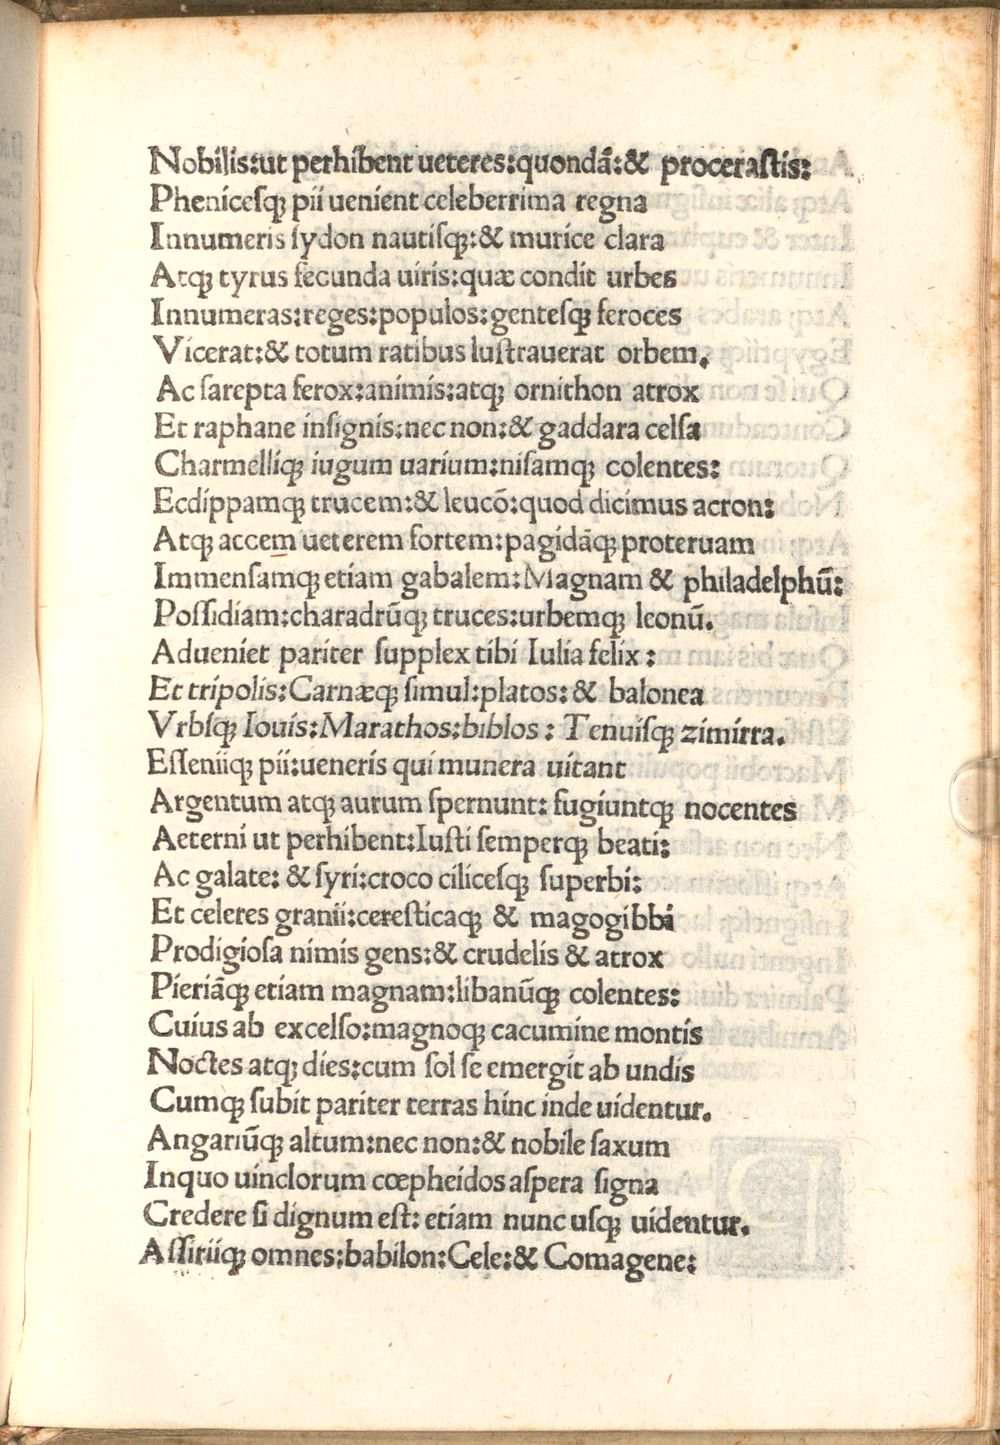 Nobilis:ut perhibent ueteres:quondã:& procerastis:
Phenicesꝗ pii uenient celeberrima regna
Innumeris sydon nautisꝗ:& murice clara
Atꝗ tyrus fecunda uiris:quæ condit urbes
Innumeras:reges:populos:gentesꝗ feroces
Vicerat:& totum ratibus lustrauerat orbem.
Ac sarepta ferox:animis:atꝗ ornithon atrox
Et raphane insignis:nec non:& gaddara celsa
Charmelliꝗ iugum uarium:nisamꝗ colentes:
Ecdippamꝗ trucem:& leucõ:quod dicimus acron:
Atꝗ accem ueterem fortem:pagidãꝗ proteruam
Immensamꝗ etiam gabalem:Magnam & philadelphũ:
Possidiam:charadrũꝗ truces:urbemꝗ leonũ.
Adueniet pariter supplex tibi Iulia felix:
Et tripolis:Carnæꝗ simul:platos:& balonea
Vrbsꝗ Iouis:Marathos:biblos: Tenuisꝗ zimirra.
Esseniiꝗ pii:ueneris qui munera uitant
Argentum atꝗ aurum spernunt: fugiuntꝗ nocentes
Aeterni ut perhibent:Iusti semperꝗ beati:
Ac galate: & syri:croco cilicesꝗ superbi:
Et celeres granii:ceresticaꝗ & magogibbi
Prodigiosa nimis gens:& crudelis & atrox
Pieriãꝗ etiam magnam:libanũꝗ colentes:
Cuius ab excelso:magnoꝗ cacumine montis
Noctes atꝗ dies:cum sol se emergit ab undis
Cumꝗ subit pariter terras hinc inde uidentur.
Angariũꝗ altum:nec non:& nobile saxum
Inquo uinclorum cœpheidos aspera signa
Credere si dignum est: etiam nunc usꝗ uidentur.
Assiriiꝗ omnes:babilon:Cele:& Comagene: